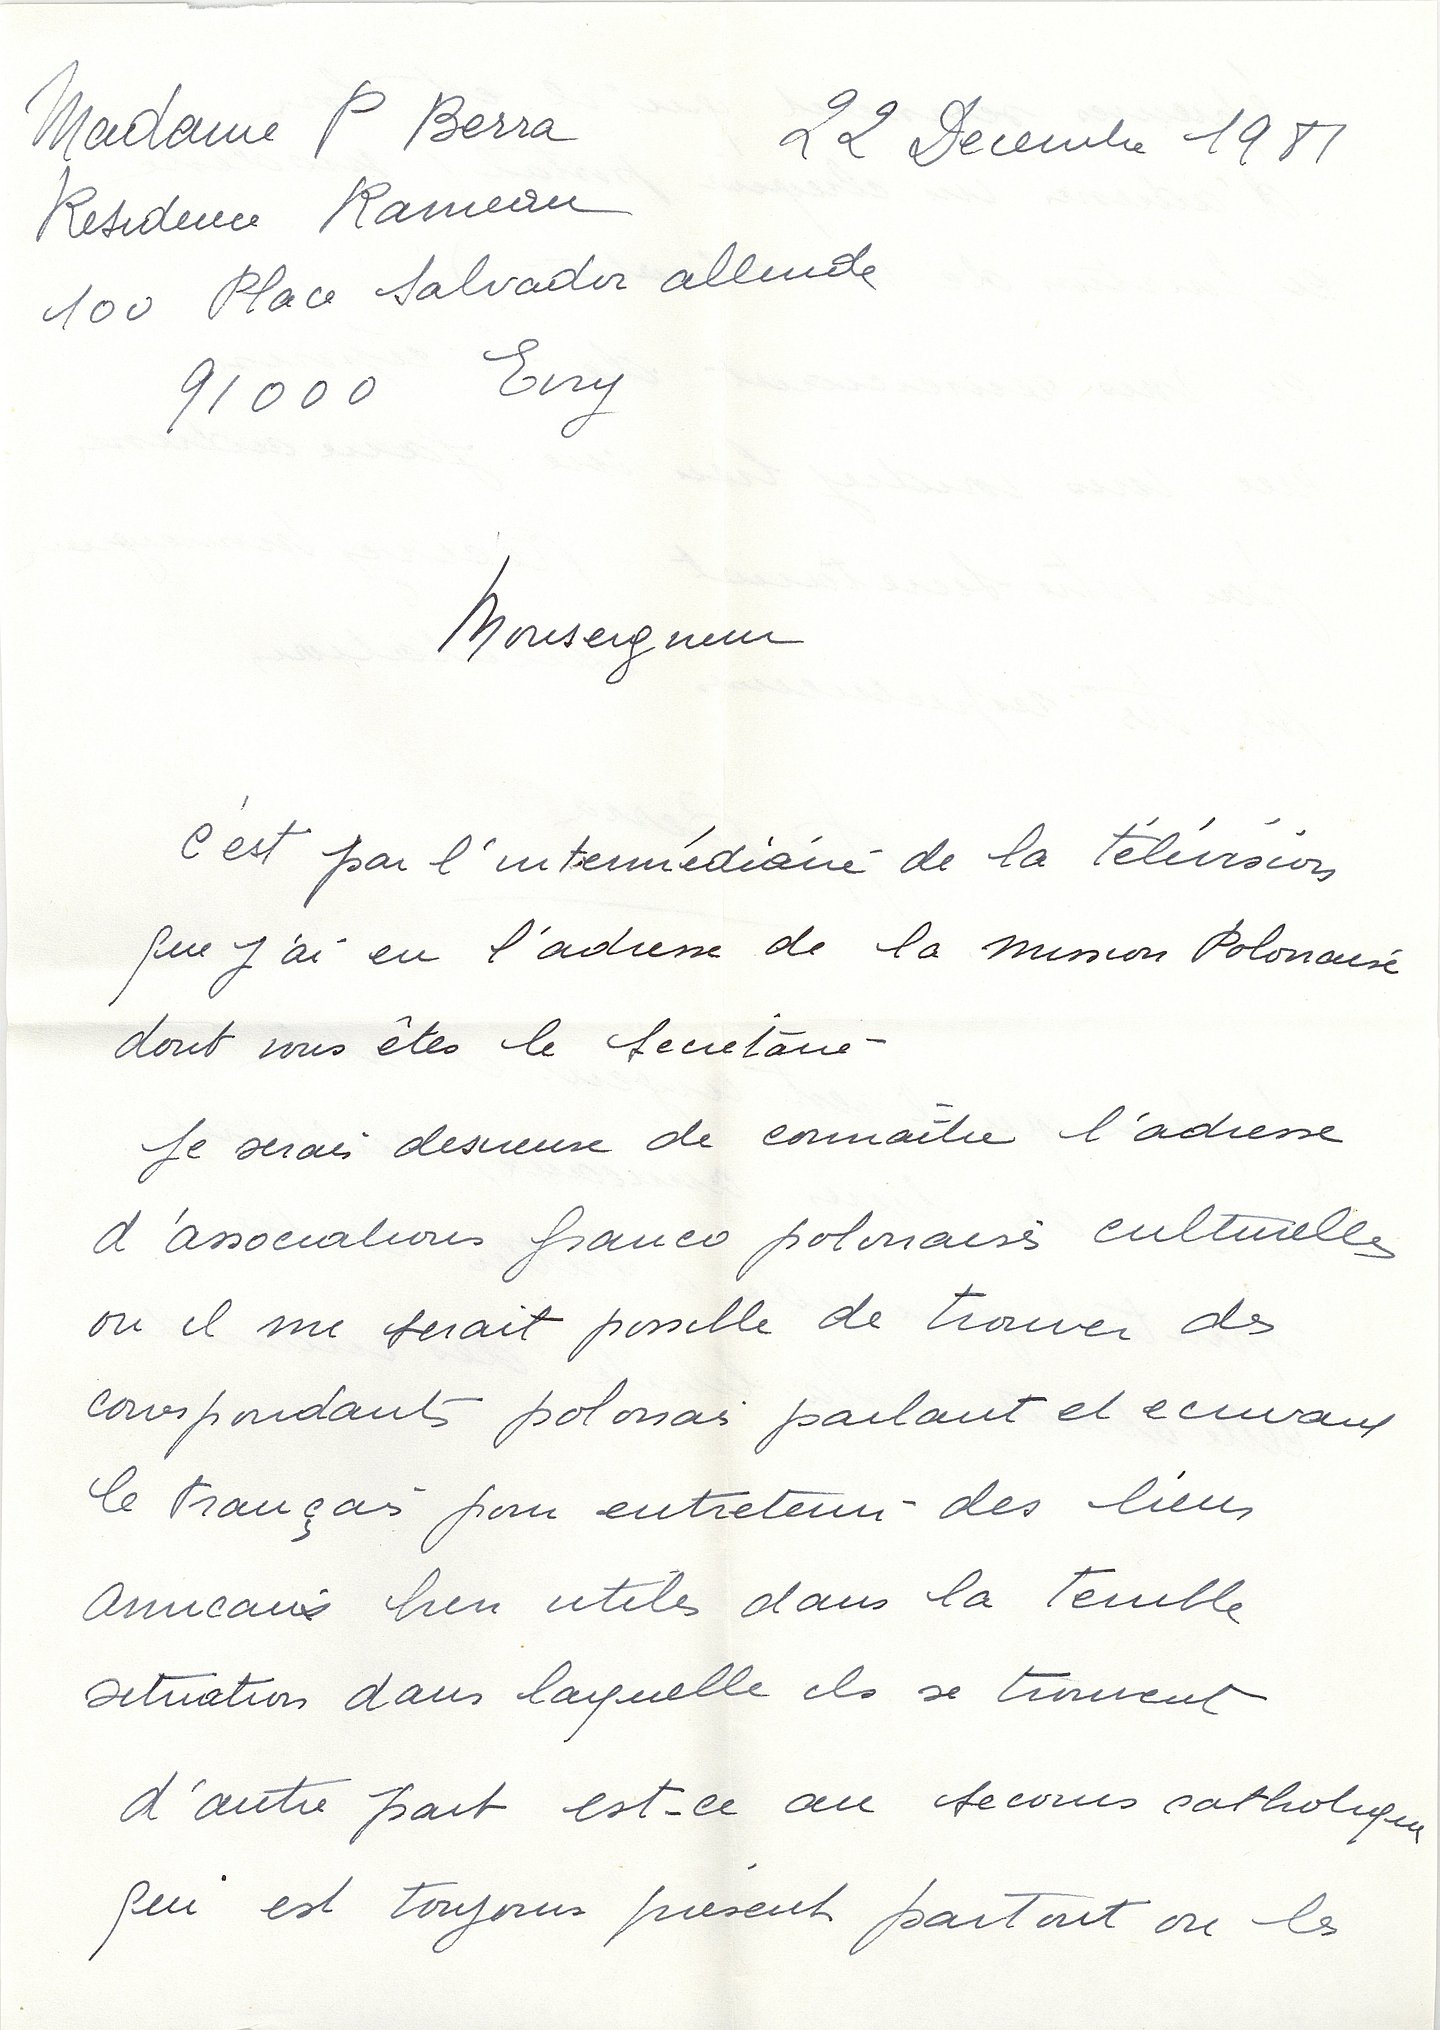 Madame P Berra
22 Decembre 1981
Residence Rameau
100 Place Salvador allende
91000 Evry
Monseigneur
C'est par l'intermédiaire de la télévision
que j'ai eu l'adresse de la mission Polonaise
dont vous êtes le secretaire
Je serais desireuse de connaître l'adresse
d'associations franco polonaises culturelles
ou il me serait possible de trouver des
correspondants polonais parlant et ecrivant
le français pour entretenir des liens
amicaux bien utiles dans la terrible
situation dans laquelle ils se trouvent
d'autre part est-ce au secours catholique
qui est toujours présent partout ou les